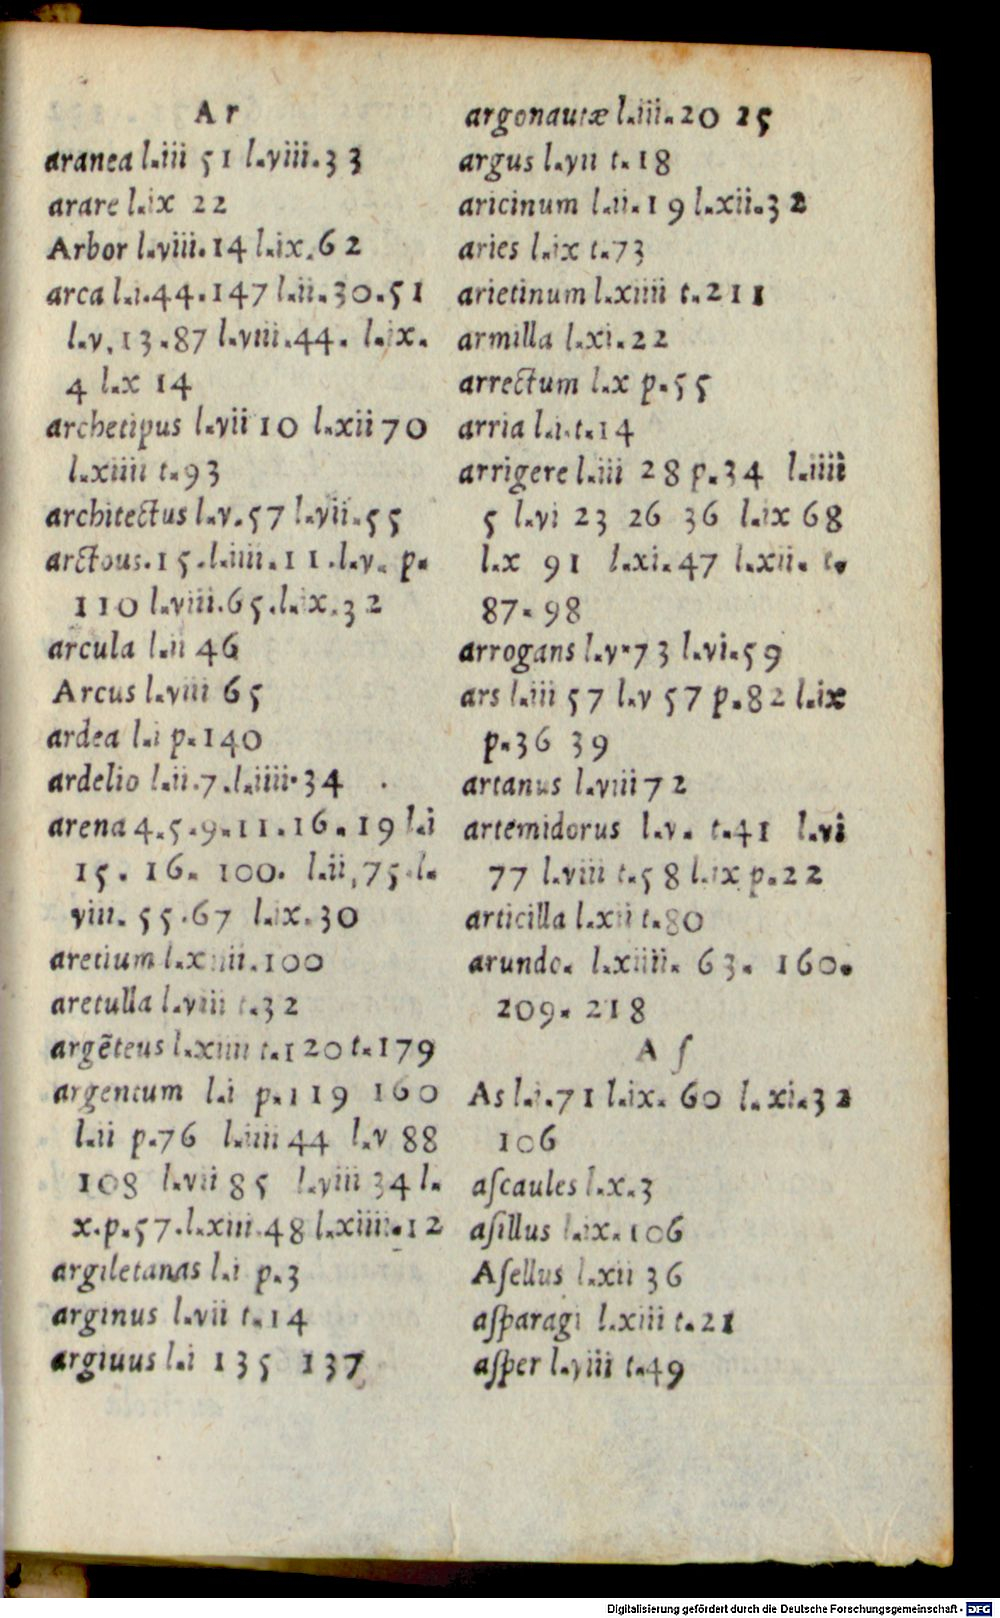 A r
aranea l.iii 51 l.viii.33
arare l.ix 22
Arbor l.viii.14 l.ix.62
arca l.i.44.147 l.ii.30.51
l.v.13.87 l.viii.44. l.ix.
4 l.x 14
archetipus l.vii 10 l.xii 70
l.xiiii t.93
architectus l.v.57 l.vii.55
arctous.15.l.iiii.11.l.v. p.
110 l.viii.65.l.ix.32
arcula l.ii 46
Arcus l.viii 65
ardea l.i p.140
ardelio l.ii.7.l.iiii.34
arena 4.5.9.11.16.19 l.i
15. 16. 100. l.ii,75 l.
viii. 55.67 l.ix.30
aretium l.xiiii.100
aretulla l.viii t.32
argẽteus l.xiiii t.120 t.179
argentum l.i p.119 160
l.ii p.76 l.iiii 44 l.v 88
108 l.vii 85 l.viii 34 l.
x.p.57.l.xiii.48 l.xiiii.12
argiletanas l.i p.3
arginus l.vii t.14
argiuus l.i 135 137
argonautæ l.iii.20 25
argus l.vii t.18
aricinum l.ii.19 l.xii.32
aries l.ix t.73
arietinum l.xiiii t.211
armilla l.xi.22
arrectum l.x p.55
arria l.i.t.14
arrigere l.iii 28 p.34 l.iiii
5 l.vi 23 26 36 l.ix 68
l.x 91 l.xi.47 l.xii. t.
87.98
arrogans l.v.73 l.vi.59
ars l.iii 57 l.v 57 p.82 l.ix
p.36 39
artanus l.viii 72
artemidorus l.v. t.41 l.vi
77 l.viii t.58 l.ix p.22
articilla l.xii t.80
arundo. l.xiiii. 63. 160.
209. 218
A ſ
As l.i.71 l.ix. 60 l.xi.32
106
aſcaules l.x.3
aſillus l.ix.106
Aſellus l.xii 36
aſparagi l.xiii t.21
aſper l.viii t.49
Digitalisierung gefördert durch die Deutsche Forschungsgemeinschaft - DFG